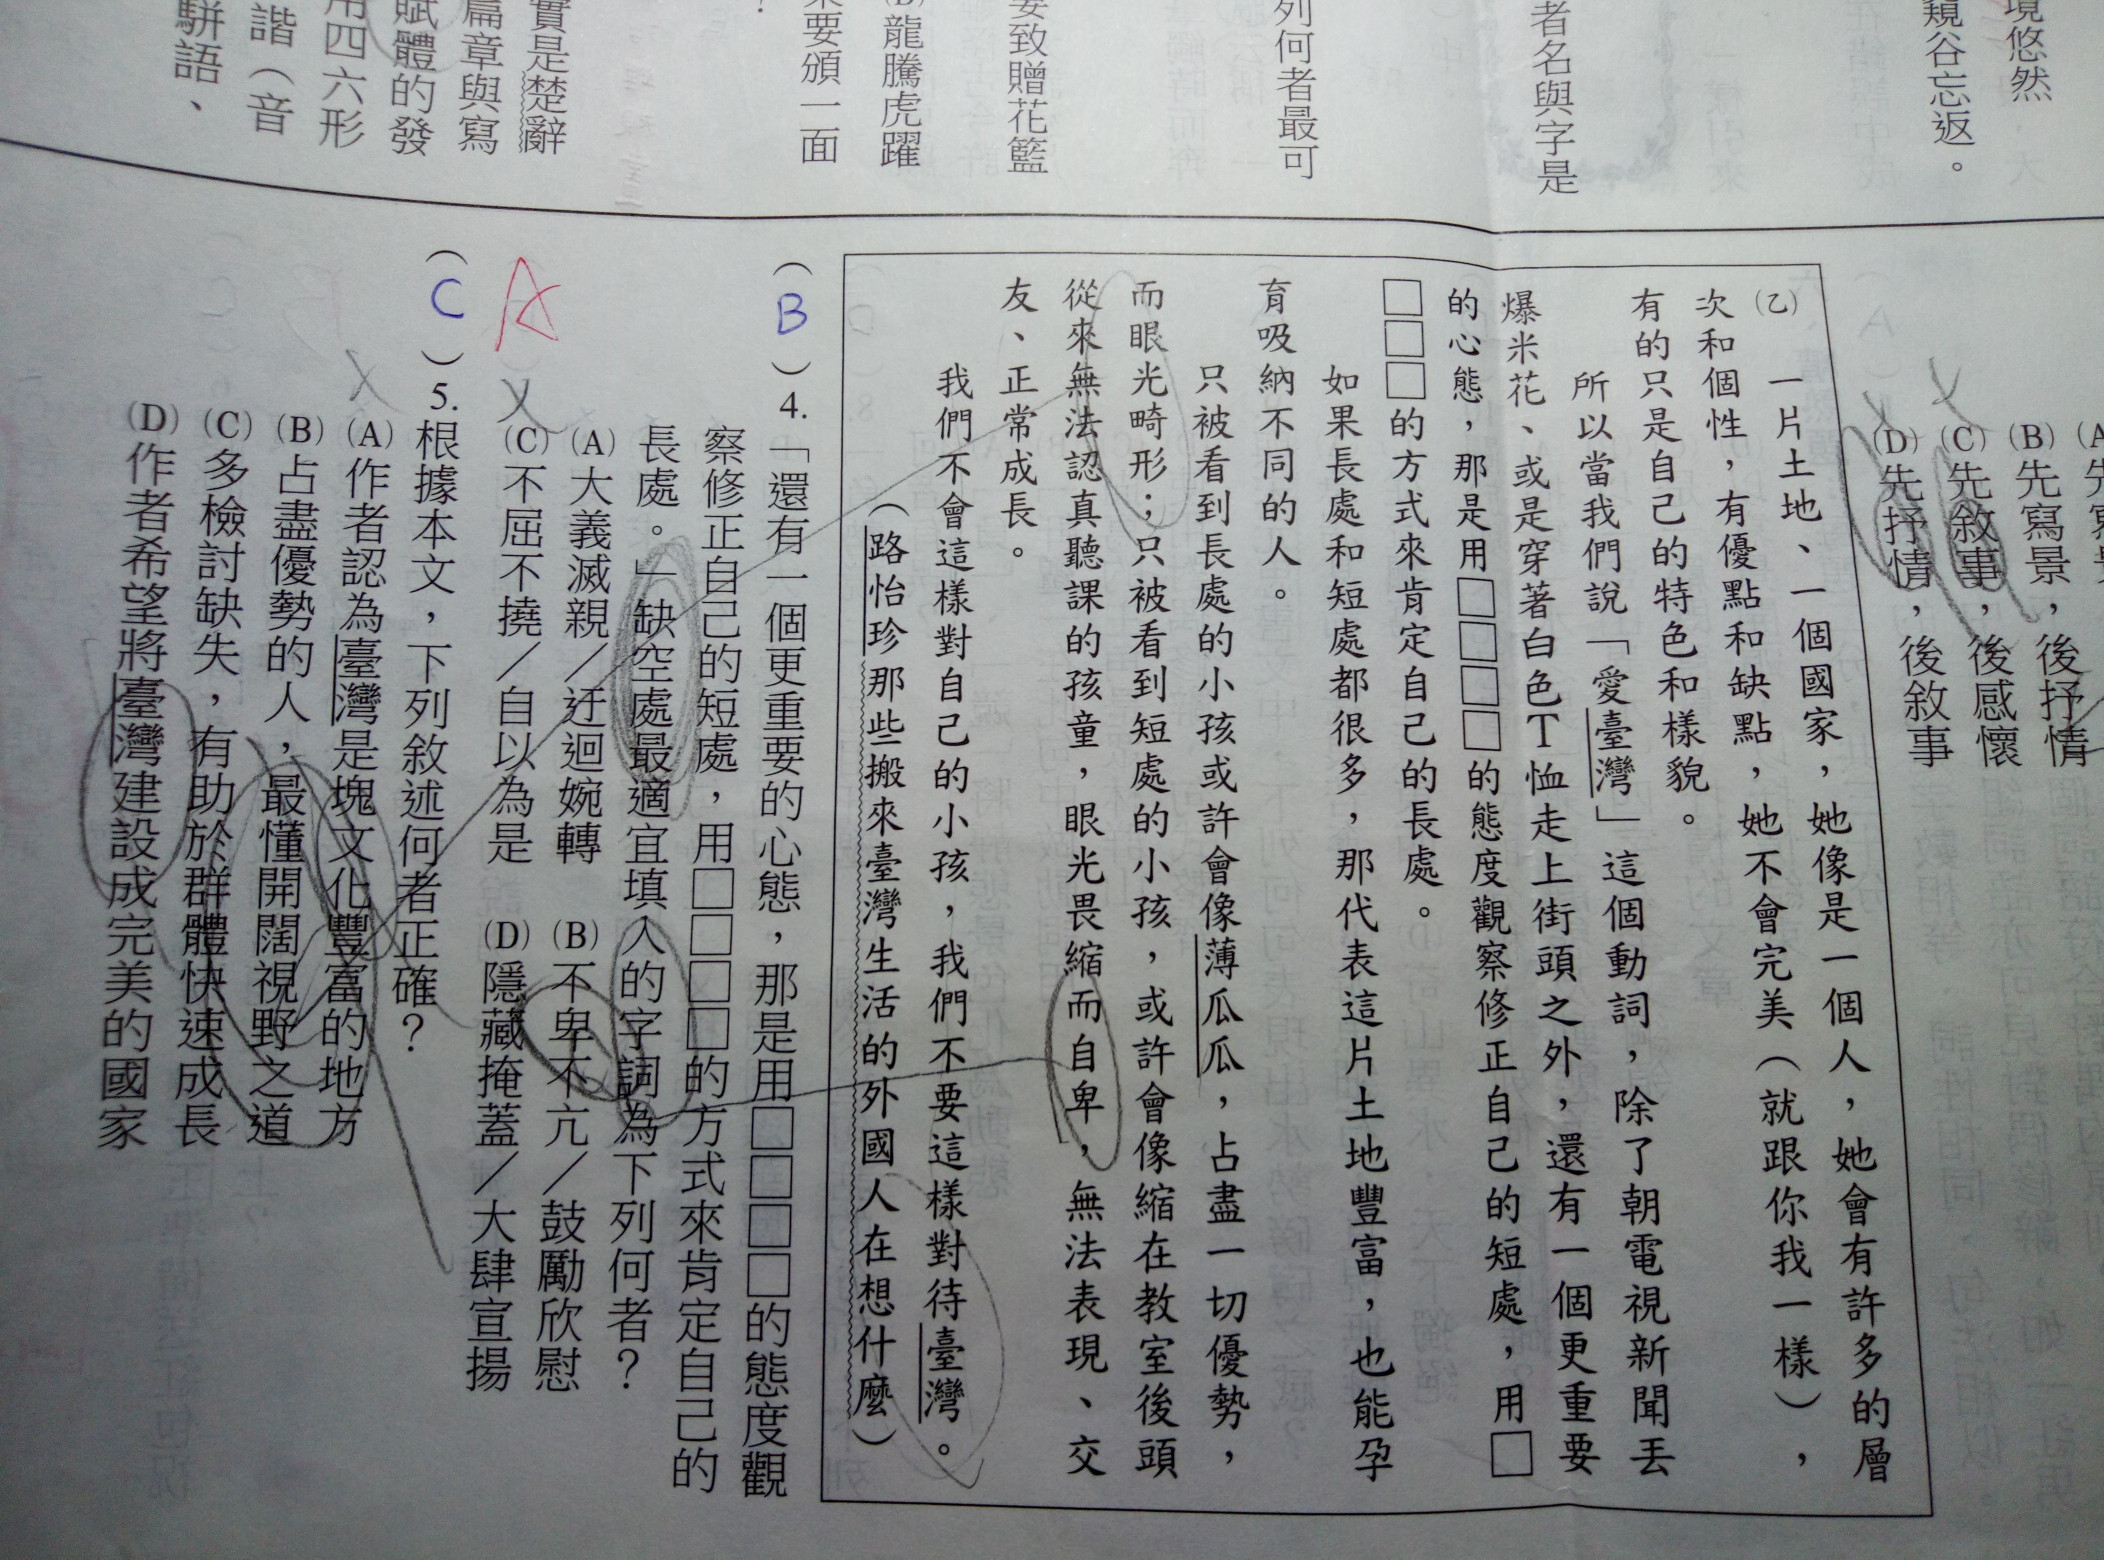 境悠然
窺谷忘返。
者名與字是
列何者最可
要致贈花籃
龍騰虎躍
要頒一面
實是楚辭
篇章與寫
賦體的發
用四六形
諧（音
駢語、
(B)先寫景，後抒情
(C)先敘事，後感懷
(D)先抒情，後敘事
㈡一片土地、一個國家，她像是一個人，她會有許多的層
次和個性，有優點和缺點，她不會完美（就跟你我一樣），
有的只是自己的特色和樣貌。
所以當我們說「愛臺灣」這個動詞，除了朝電視新聞丟
爆米花、或是穿著白色T恤走上街頭之外，還有一個更重要
的心態，那是用□□□□的態度觀察修正自己的短處，用□
□□□的方式來肯定自己的長處。
如果長處和短處都很多，那代表這片土地豐富，也能孕
育吸納不同的人。
只被看到長處的小孩或許會像薄瓜瓜，占盡一切優勢，
而眼光畸形；只被看到短處的小孩，或許會像縮在教室後頭
從來無法認真聽課的孩童，眼光畏縮而自卑，無法表現、交
友、正常成長。
我們不會這樣對自己的小孩，我們不要這樣對待臺灣。
（路怡珍那些搬來臺灣生活的外國人在想什麼）
（B）4.「還有一個更重要的心態，那是用□□□□的態度觀
察修正自己的短處，用□□□□的方式來肯定自己的
長處。」缺空處最適宜填入的字詞為下列何者？
(A)大義滅親／迂迴婉轉 (B)不卑不亢／鼓勵欣慰
(C)不屈不撓／自以為是 (D)隱藏掩蓋／大肆宣揚
A
（C）5.根據本文，下列敘述何者正確？
(A)作者認為臺灣是塊文化豐富的地方
(B)占盡優勢的人，最懂開闊視野之道
(C)多檢討缺失，有助於群體快速成長
(D)作者希望將臺灣建設成完美的國家